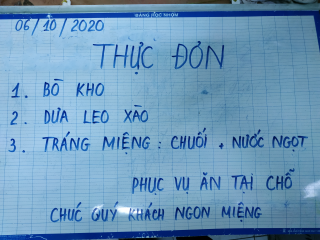 BẢNG HỌC NHÓM
06/10/2020
THỰC ĐƠN
1. BÒ KHO
2. DƯA LEO XÀO
3. TRÁNG MIỆNG : CHUỐI + NƯỚC NGỌT
PHỤC VỤ ĂN TẠI CHỖ
CHÚC QUÝ KHÁCH NGON MIỆNG